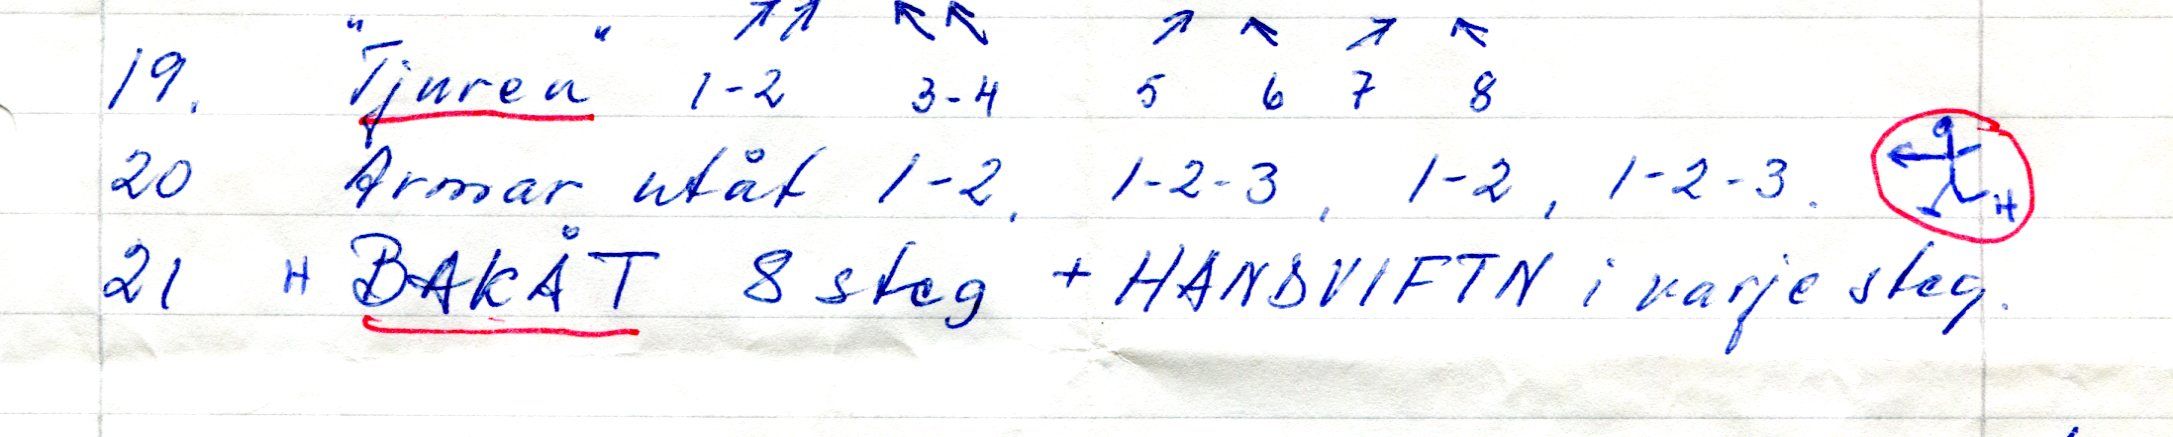 19. "Tjuren" 1-2 3-4 5 6 7 8
20 Armar utåt 1-2, 1-2-3, 1-2, 1-2-3. H
21 H BAKÅT 8 steg + HANDVIFTN i varje steg.